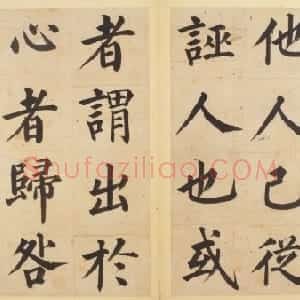 他人己從
誣人也或
者謂出於
心者歸咎
Shufaziliao.COM